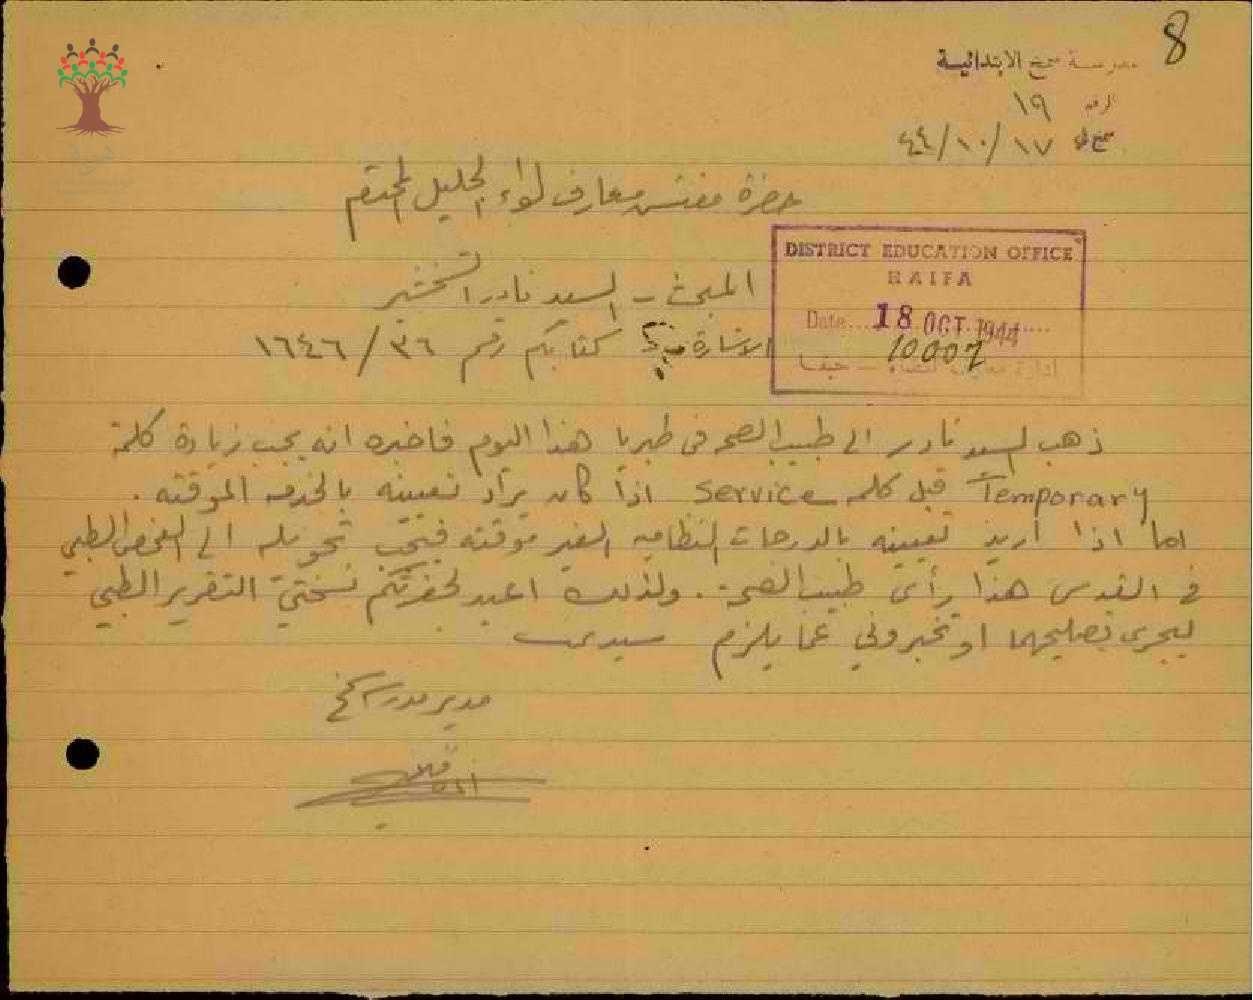 8
مدرسة سمخ الابتدائية
الرقم ١٩
سمخ في ٤٤/١٠/١٧
هوية
حضرة مفتش معارف لواء الجليل المحترم
DISTRICT EDUCATION OFFICE
HAIFA
Date... 18 OCT 1944
10007
ادارة معارف لواء حيفا
المبحث - السيد نادر
الاشارة كتابكم رقم ١٦٤٦/٣٦
ذهب السيد نادر الى طبيب الصحه في طبريا هذا اليوم فاخبره انه يجب زيادة كلمة
Temporary قبل كلمه Service اذا كان يراد تعيينه بالخدمه الموقته .
اما اذا اريد تعيينه بالدرجات النظاميه الغير موقته فيجب تحويله الى الفحص الطبي
في القدس هذا رأى طبيب الصحة . ولذلك اعيد لحضرتكم نسختي التقرير الطبي
ليجرى تصليحهما او تخبروني عما يلزم سيدي
مدير مدرسة سمخ